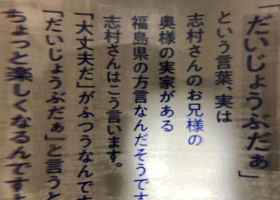 「だいじょうぶだぁ」
という言葉、実は
志村さんのお兄様の
奥様の実家がある
福島県の方言なんだそうです
志村さんはこう言います。
「大丈夫だ」がふつうなんです
「だいじょうぶだぁ」と言うと
ちょっと楽しくなるんですよ